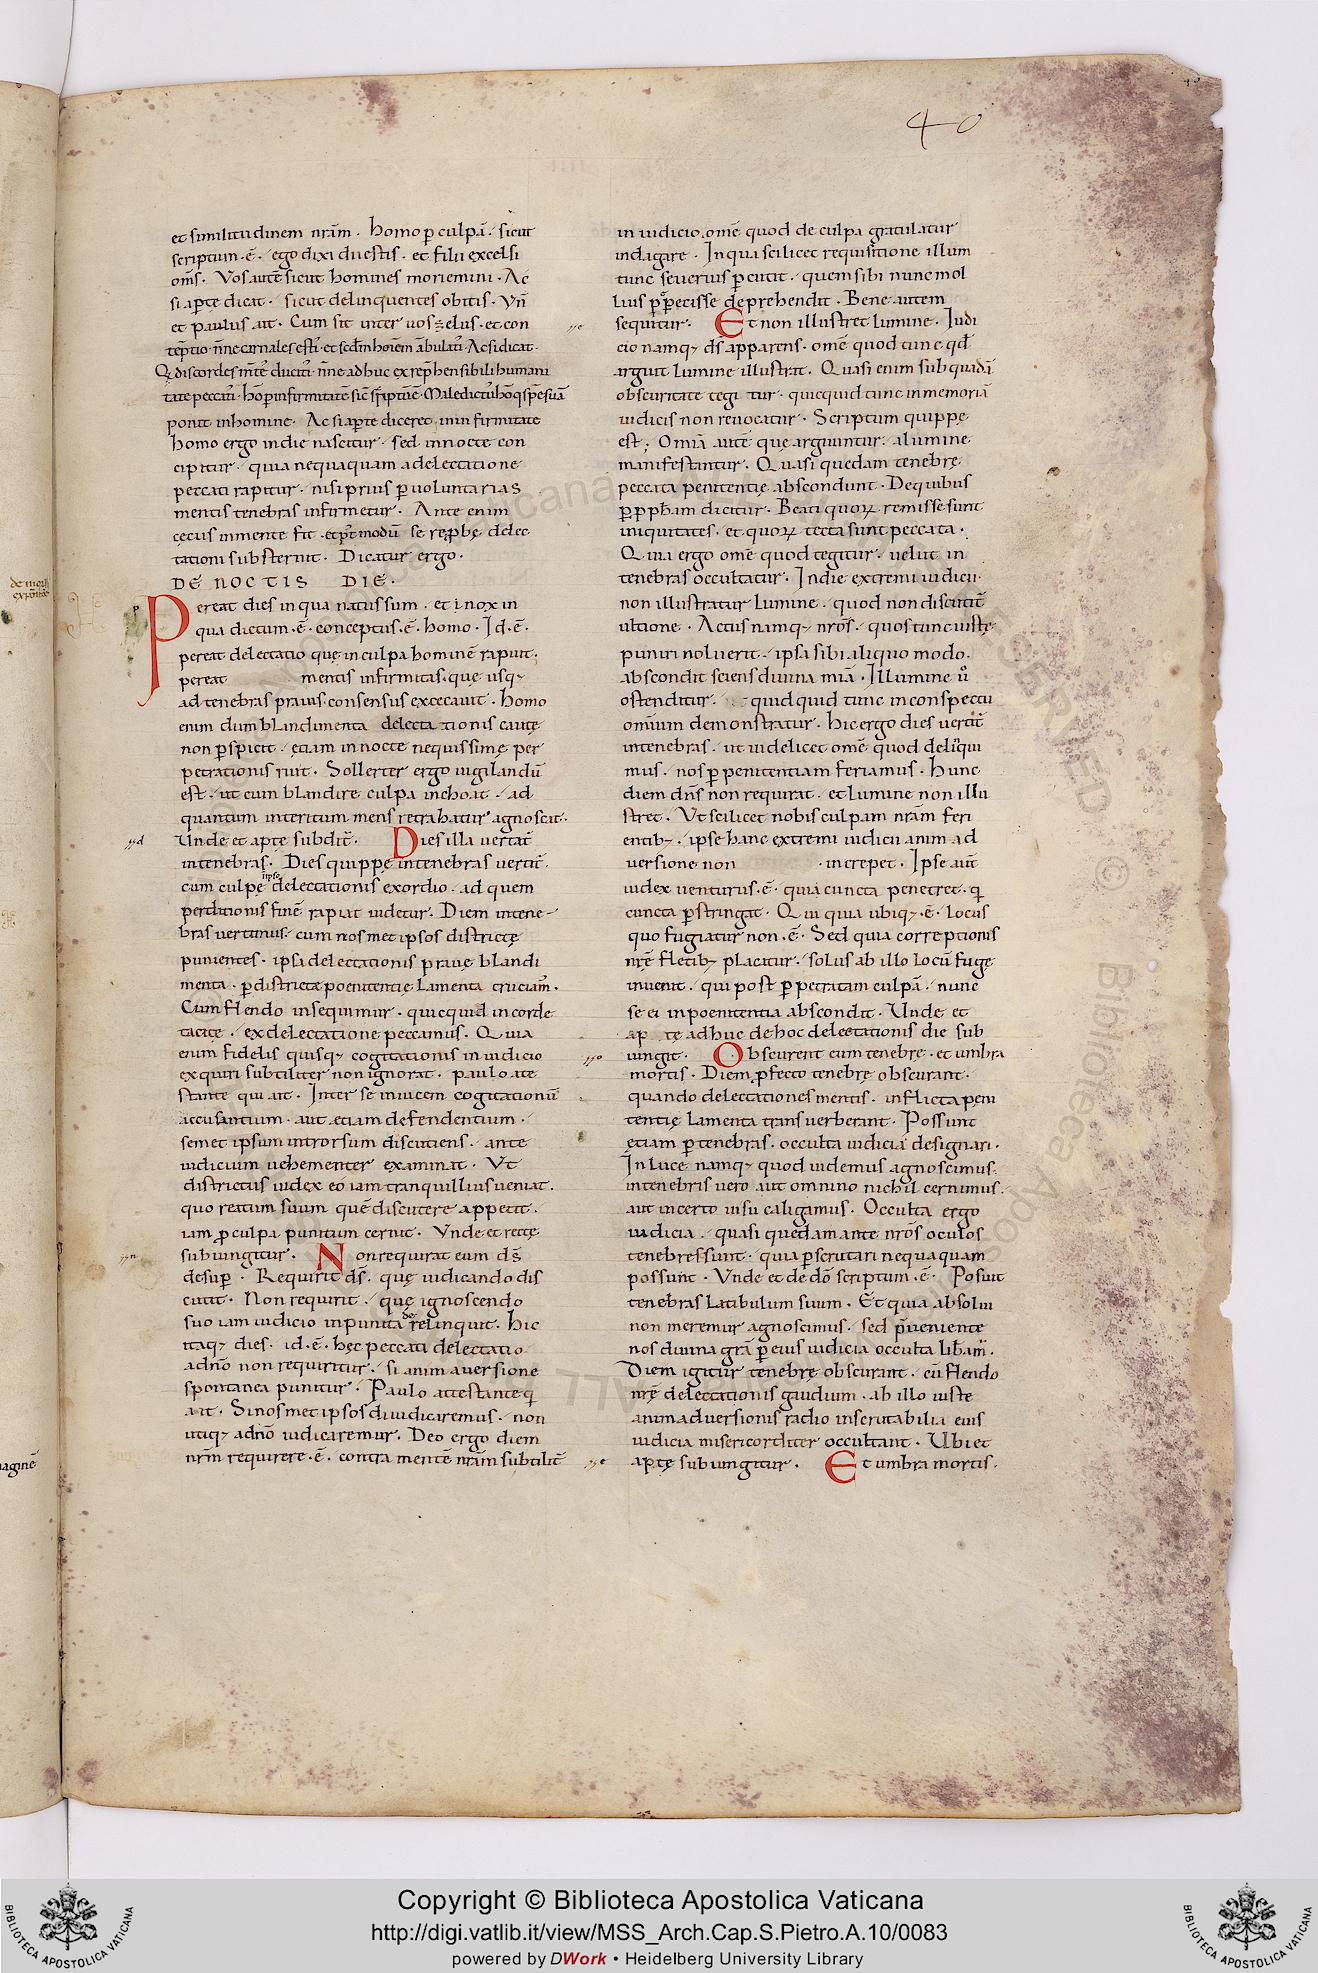 40
et similitudinem nrãm . homo p̱ culpã . sicut
scriptum . ē . ego dixi dii estis . et filii excelsi
om̃s . Vos autē sicut homines moriemini . Ac
si ap̱te dicat . sicut delinquentes obitis . Vñ
et paulus ait . Cum sit inter uos zelus . et con
ponit in homine . Ac si ap̱te diceret . in infirmitate
homo ergo in die nascitur . sed in nocte con
cipitur . quia nequaquam a delectatione
peccati rapitur . nisi prius p̱ uoluntarias
mentis tenebras infirmetur . Ante enim
cęcus in mente fit . et p̱t modū se reprobę delec
tationi substernit . Dicatur ergo .
DE NOCTIS DIE .
Pereat dies in qua natus sum . et i nox in
qua dictum . ē . conceptus . ē . homo . Id . ē .
pereat delectatio quę in culpa hominē rapuit .
pereat mentis infirmitas . quę usq;
ad tenebras prauis consensus excecauit . homo
enim dum blandimenta delectationis cautę
non p̱spicit . etiam in nocte nequissimę per
petrationis ruit . Sollerter ergo uigilandū
est . ut cum blandire culpa inchoat . ad
quantum interitum mens retrahatur agnoscat .
Unde et apte subdit̃ . Dies illa vertat̃
in tenebras . Dies quippę in tenebras vertit̃ .
cum culpę in ipse delectationis exordio . ad quem
perditionis finē rapiat uidetur . Diem in tene-
bras vertimus . cum nosmet ipsos districtę
punientes . ipsa delectationis prauę blandi
menta . p̱ districtę poenitentię lamenta cruciam̃ .
Cum flendo insequimur . quicquid in corde
tacitę . ex delectatione peccamus . Quia
enim fidelis quisq; cogitationis in iudicio
exquiri subtiliter non ignorat . paulo ate
stante qui ait . Inter se inuicem cogitationū
accusantium . aut etiam defendentium .
semet ipsum introrsum discutiens . ante
iudicium uehementer examinat . Ut
districtus iudex eo iam tranquillius ueniat .
quo reatum suum quē discutere appetit .
iam p̱ culpa punitum cernit . Unde et rectę
subiungitur . Non requirat eum dš
desup̱ . Requirit dš . quę iudicando dis
cutit . Non requirit . quę ignoscendo
suo iam iudicio inpunita derelinquit . hic
itaq; dies . id . ē . hęc peccati delectatio
a dño non requiritur . si animaversione
spontanea punitur . Paulo attestante q̃
ait . Si nosmet ipsos diiudicaremus . non
utiq; a dño iudicaremur . Deo ergo diem
nrm̃ requirere . ē . contra mentē nrãm subtilit̃
in iudicio . omē quod de culpa gratulatur
indagare . In qua scilicet requisitione illum
tunc seuerius p̱cutit . quem sibi nunc mol
lius pepercisse deprehendit . Bene autem
sequitur . Et non illustret lumine . Iudi
cio namq; dš apparens . omē quod tunc qđ
arguit lumine illustrat . Quasi enim sub quadã
obscuritate tegitur . quicquid tunc in memoriã
iudicis non reuocatur . Scriptum quippę
est . Omnia autē quę arguuntur . a lumine
manifestantur . Quasi quedam tenebrę
peccata penitentię abscondunt . De quibus
p̱ pphãm dicitur . Beati quoꝝ remisse sunt
iniquitates . et quoꝝ tecta sunt peccata .
Quia ergo omē quod tegitur . uelut in
tenebras occultatur . In die extremi iudicii
non illustratur lumine . quod non discutit̃
ultione . Actus namq; nrõs . quos tunc iustę
puniri noluerit . ipsa sibi aliquo modo .
abscondit sciens diuina miã . In lumine ũ
ostenditur . quidquid tunc in conspectu
omnium demonstratur . hic ergo dies vertit̃
in tenebras . ut uidelicet omē quod deliqui
mus . nos p̱ penitentiam feriamus . hunc
diem dñs non requirat . et lumine non illu
stret . Ut scilicet nobis culpam nrãm feri
entib; . ipse hanc extremi iudicii anim ad
versione non . increpet . Ipse aut̃
iudex uenturus . ē . quia cuncta penetret . q̃
cuncta p̱stringat . Qui quia ubiq; . ē . locus
quo fugiatur non . ē . Sed quia correptionis
nrē fletib; placatur . solus ab illo locū fugę
inuenit . qui post p̱petratam culpã . nunc
se ei in poenitentia abscondit . Unde et
aptę adhuc de hoc delectationis die sub
iungit . Obscurent eum tenebrę . et umbra
mortis . Diem p̱fecto tenebrę obscurant .
quando delectationes mentis . inflicta peni
tentię lamenta transverberant . Possunt
etiam p̱ tenebras . occulta iudicia designari .
In luce namq; quod uidemus agnoscimus .
in tenebris uero aut omnino nichil cernimus .
aut incerto uisu caligamus . Occulta ergo
iudicia . quasi quędam ante nrõs oculos
tenebrę sunt . quia p̱scrutari nequaquam
possunt . Unde et de dõ scriptum . ē . Posuit
tenebras latibulum suum . Et quia absolui
non meremur agnoscimus . sed p̃ueniente
nos diuina grã p̱ eius iudicia occulta lib̃am̃ .
Diem igitur tenebrę obscurant . cū flendo
nrę delectationis gaudium . ab illo iuste
animadversionis radio inscrutabilia eius
iudicia misericorditer occultant . Ubi et
ap̱tę subiungitur . Et umbra mortis .
Copyright © Biblioteca Apostolica Vaticana
http://digi.vatlib.it/view/MSS_Arch.Cap.S.Pietro.A.10/0083
powered by DWork • Heidelberg University Library